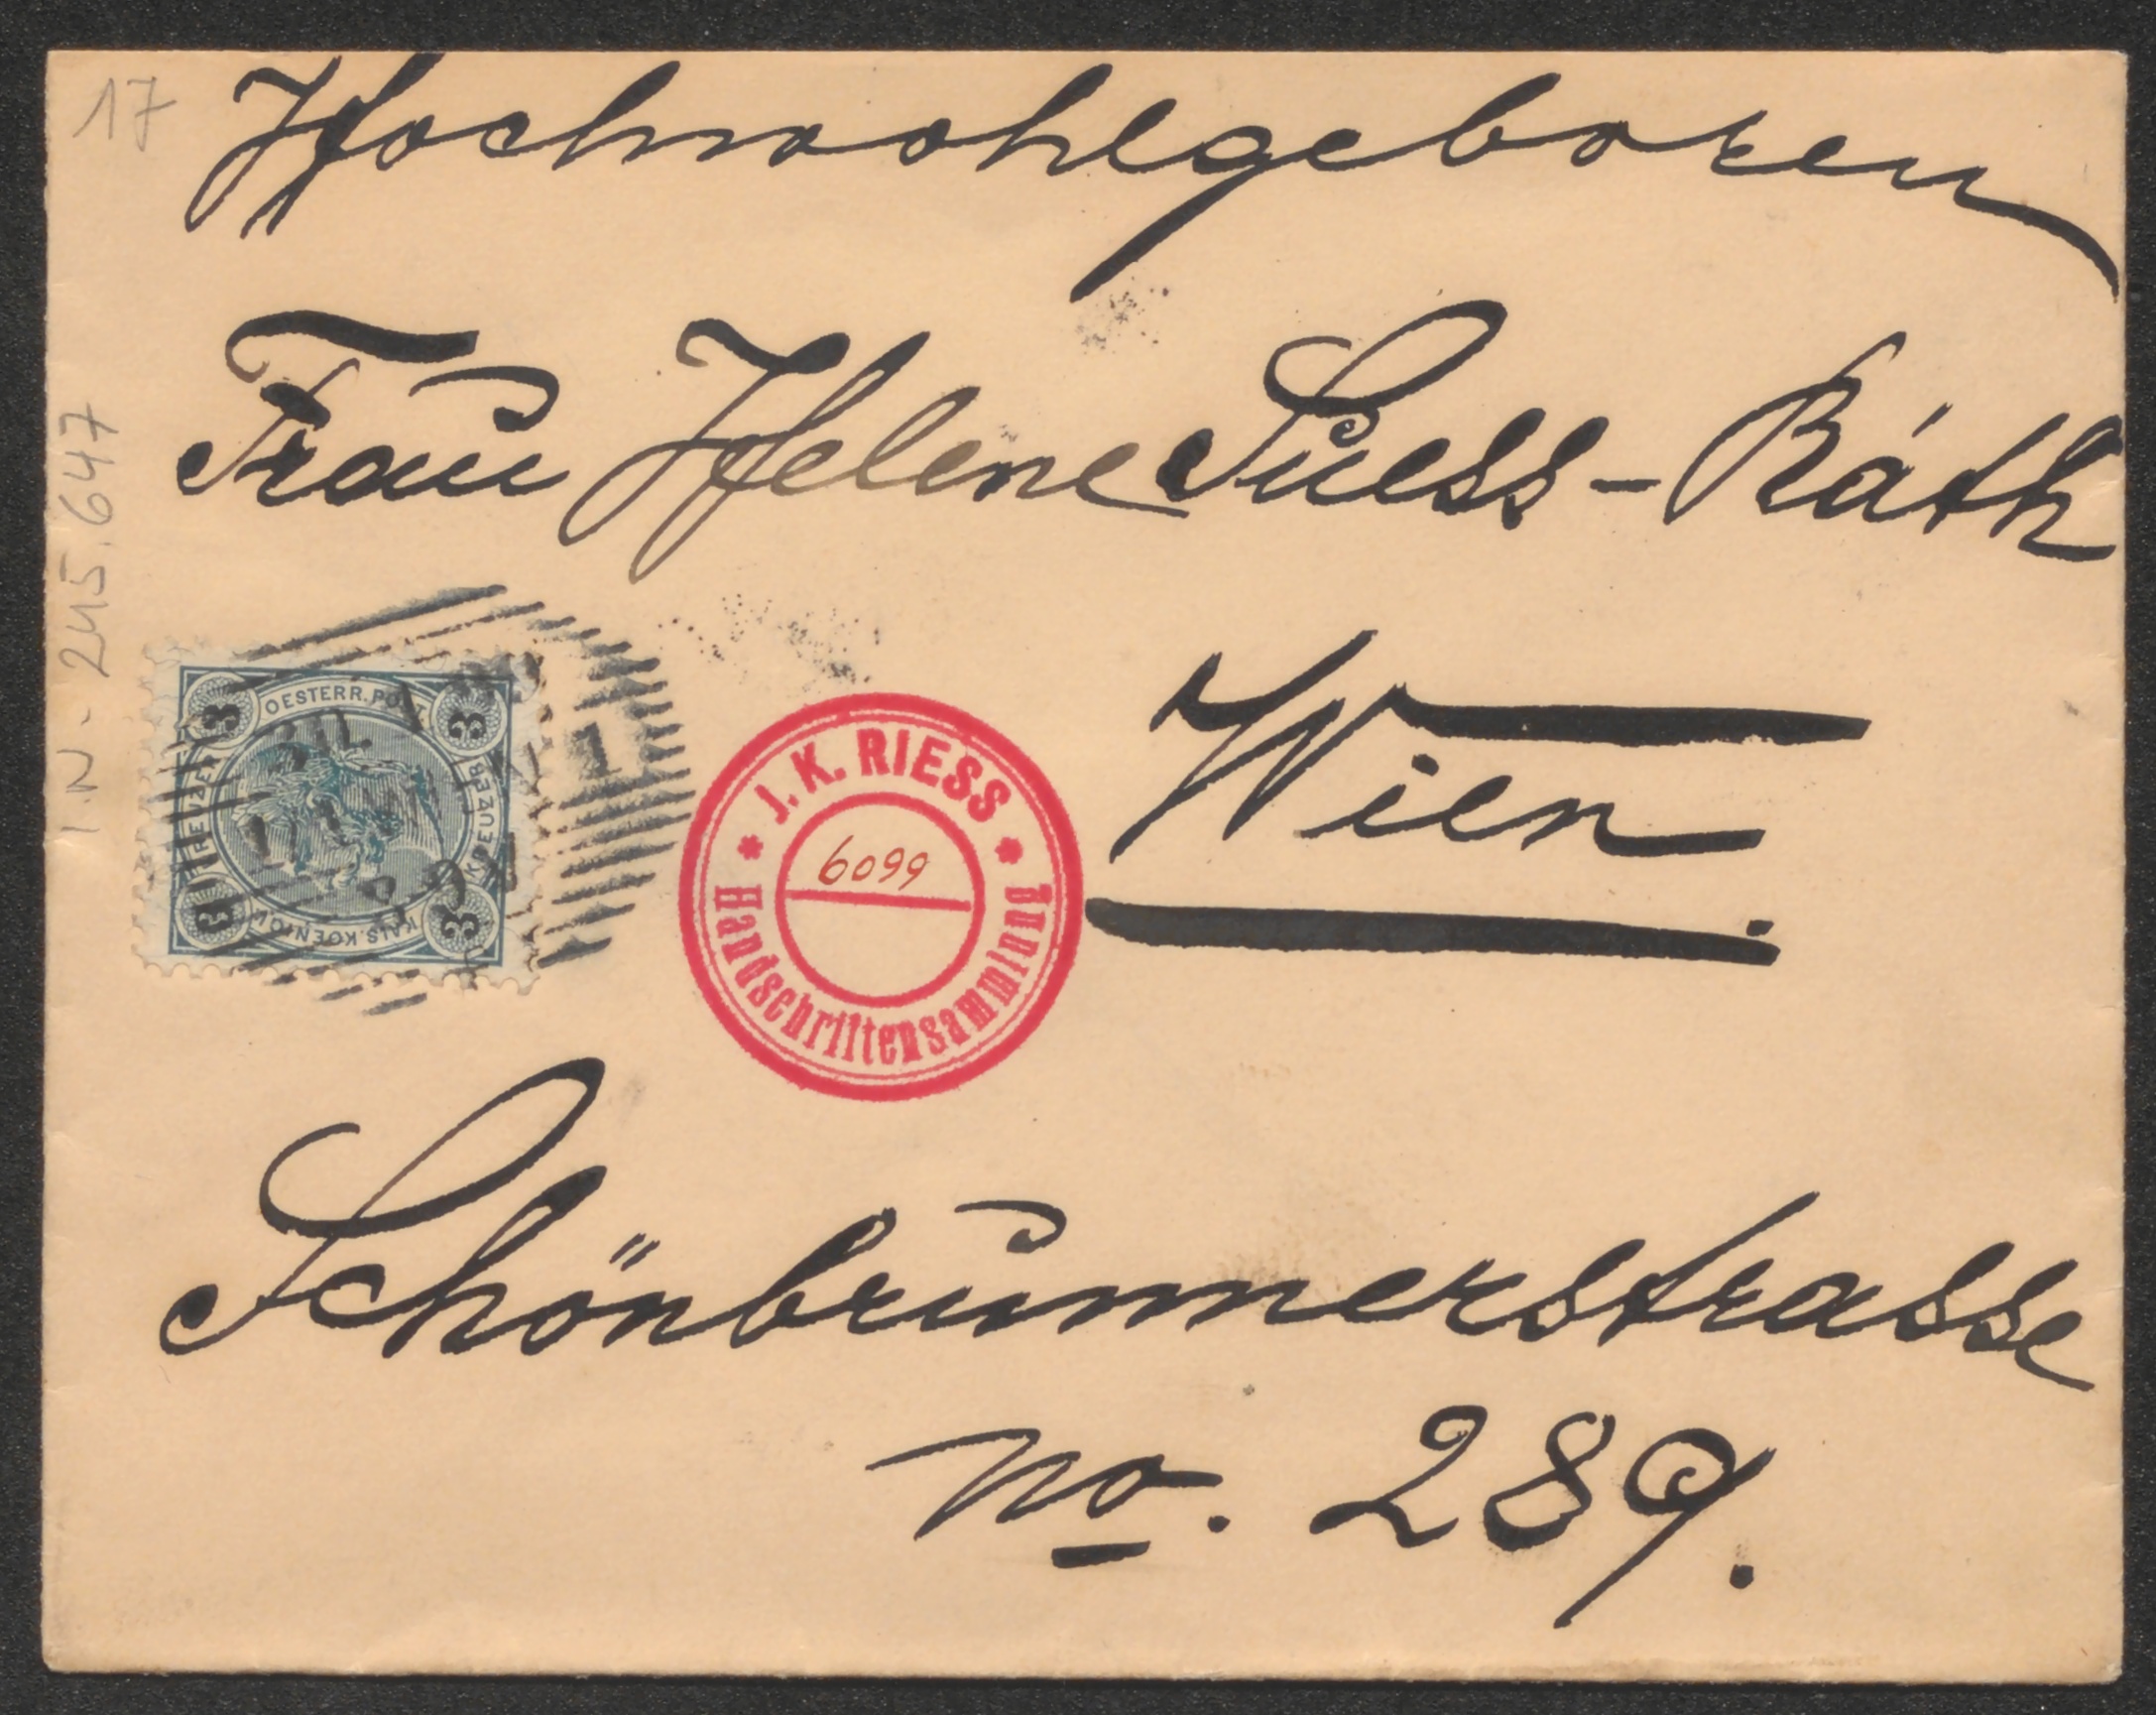 17
Hochwohlgeboren
Frau Helene Suess-Ráth
I.N. 245.647
OESTERR. POST
3 3
KREUZER KREUZER
3 3
KAIS. KOENIGL.
1
J. K. RIESS
6099
Handschriftensammlung
Wien.
Schönbrunnerstrasse
No. 289.